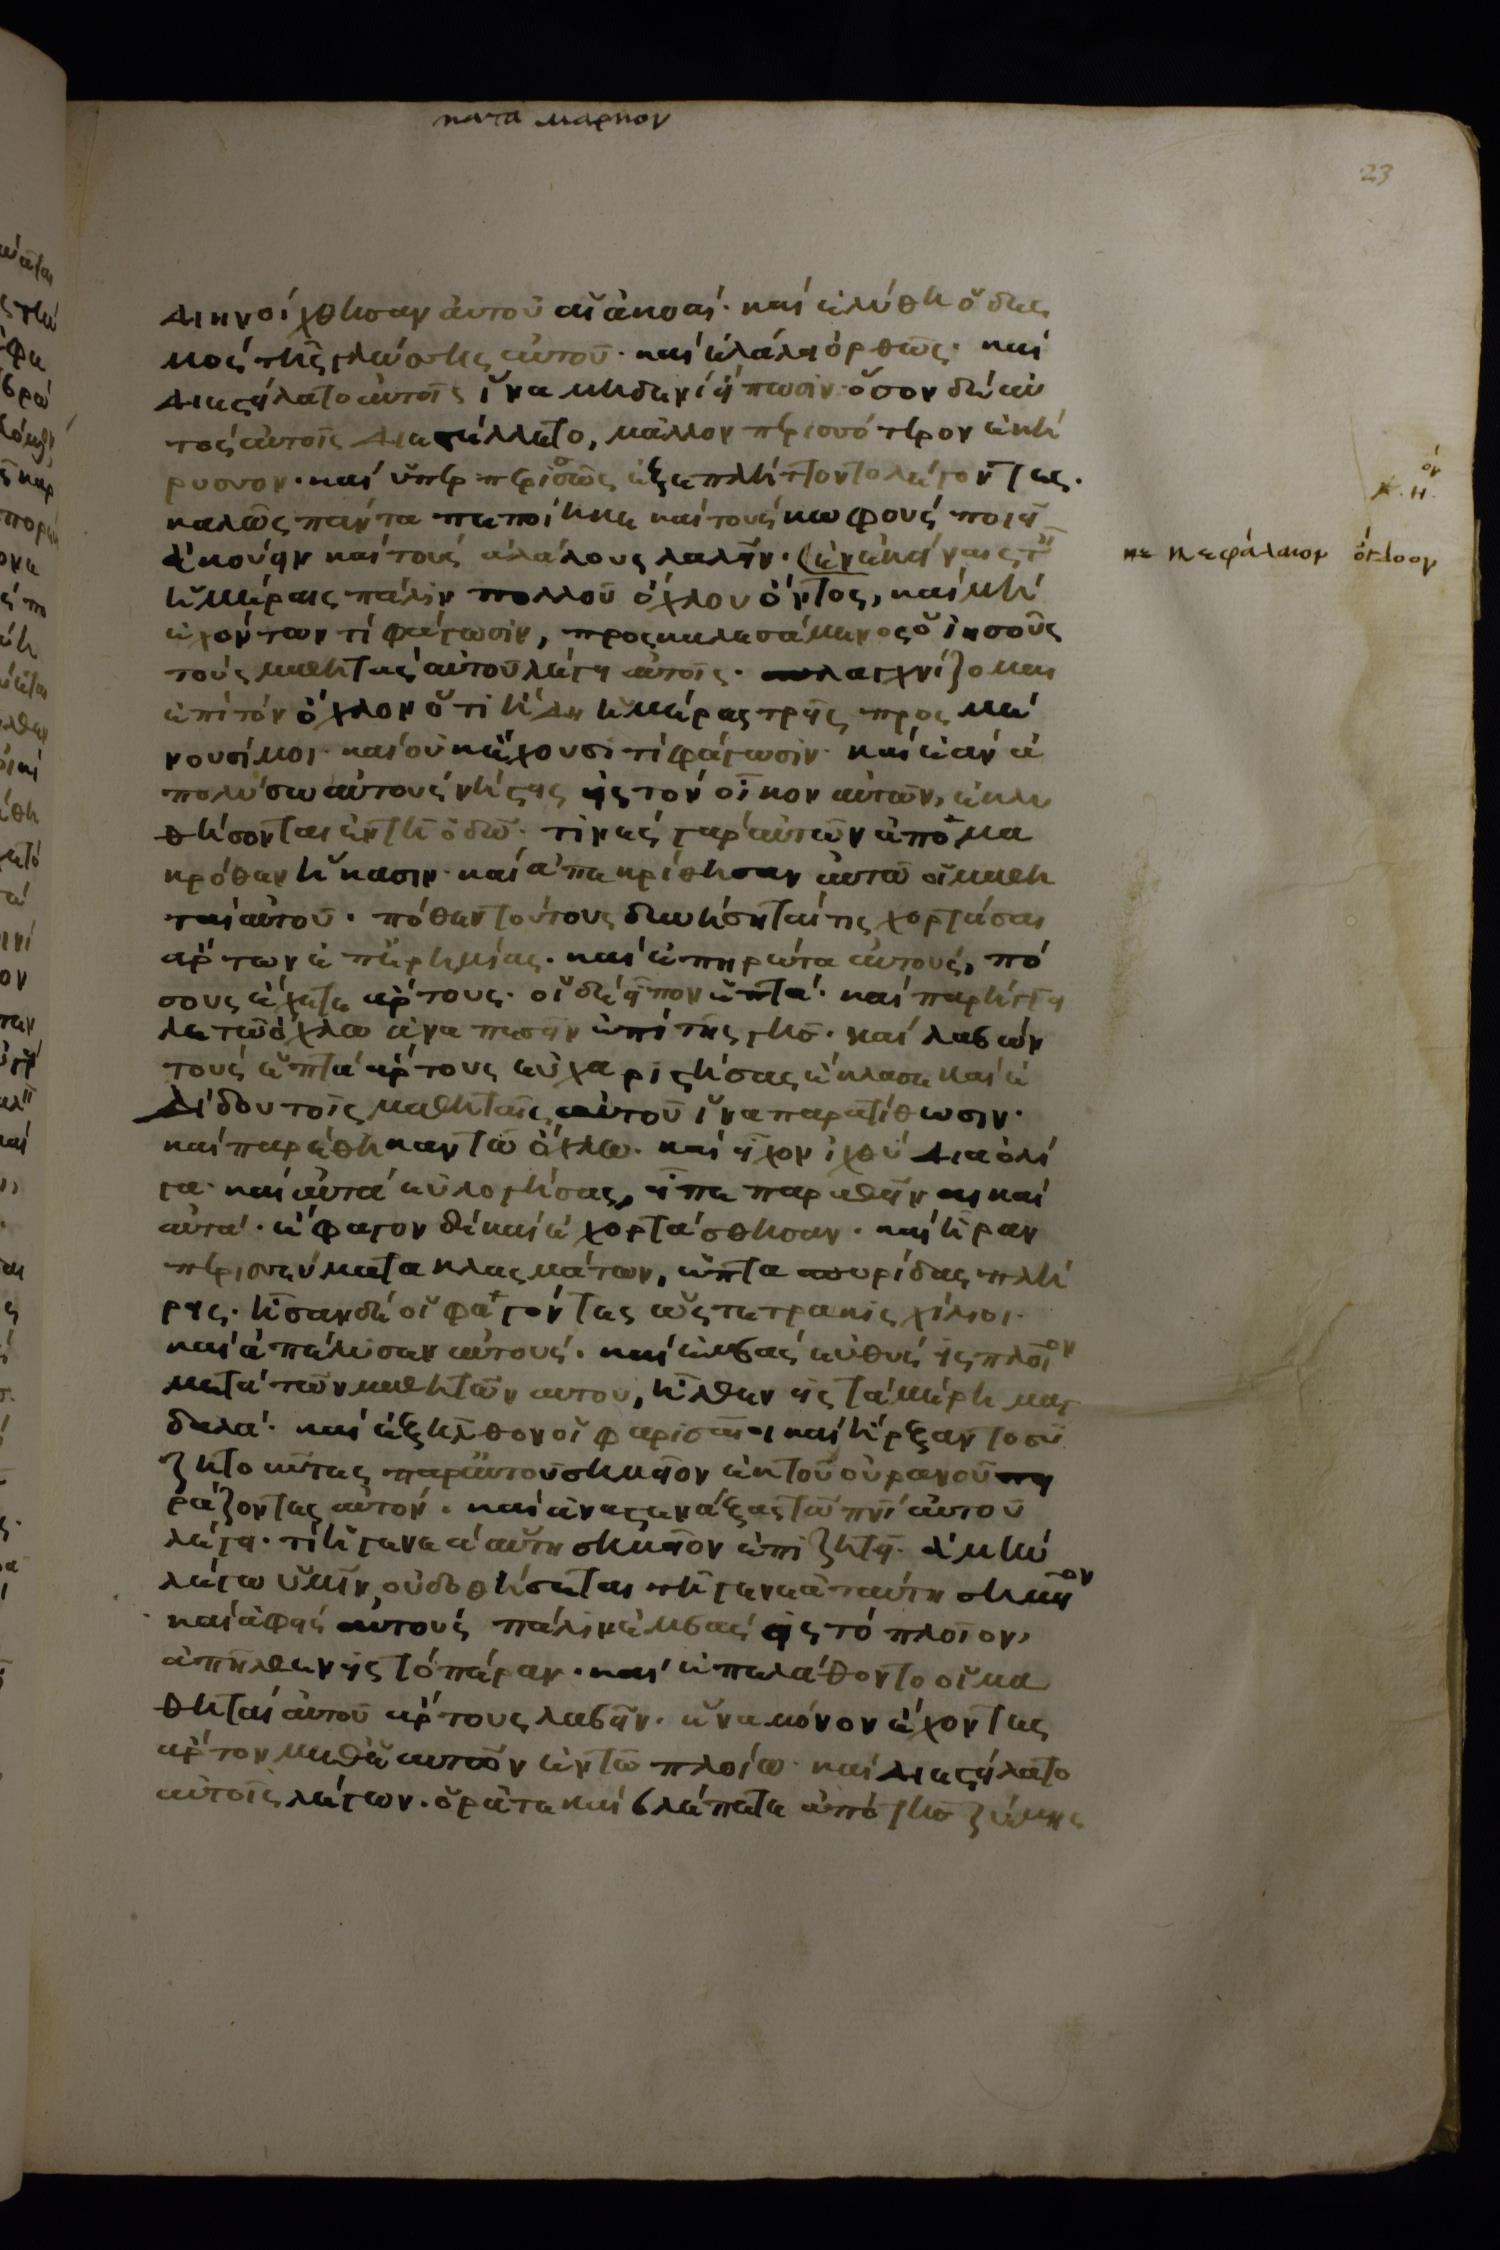 κατα μαρκον
23
διηνοίχθησαν ἀυτοῦ αἱ ἀκοαί· καὶ ἐλύθη ὁ δεσ
μὸς τῆς γλώσσης αὐτοῦ· καὶ ἐλάλει ὀρθῶς· καὶ
διεστείλατο αὐτοῖς ἵνα μηδενὶ εἴπωσιν· ὅσον δὲ αὐ
τὸς αὐτοῖς διεστέλλετο, μᾶλλον περισσότερον ἐκή
ρυσσον· καὶ ὑπερπερισσῶς ἐξεπλήττοντο λέγοντες·
καλῶς πάντα πεποίηκε καὶ τοὺς κωφοὺς ποιεῖ
ἀκούειν καὶ τοὺς ἀλάλους λαλεῖν· ἐν ἐκείναις τ
ἡμέραις πάλιν πολλοῦ ὄχλου ὄντος, καὶ μὴ
ἐχόντων τί φάγωσιν, προσκαλεσάμενος ὁ ἰησοῦς
τοὺς μαθητὰς αὐτοῦ λέγει αὐτοῖς· σπλαγχνίζομαι
ἐπὶ τὸν ὄχλον ὅτι ἤδη ἡμέρας τρεῖς προσμέ
νουσί μοι· καὶ οὐκ ἔχουσι τί φάγωσιν· καὶ ἐὰν ἀ
πολύσω αὐτοὺς νήστεις εἰς τὸν οἶκον αὐτῶν, ἐκλυ
θήσονται ἐν τῇ ὁδῶ· τινὲς γὰρ αὐτῶν ἀπὸ μα
κρόθεν ἥκασιν· καὶ ἀπεκρίθησαν αὐτῶ οἱ μαθη
ταὶ αὐτοῦ· πόθεν τούτους δυνήσεταί τις χορτάσαι
ἄρτων ἐπ' ἐρημίας· καὶ ἐπηρώτα αὐτούς, πό
σους ἔχετε ἄρτους· οἱ δὲ εἶπον ἑπτά· καὶ παρήγγει
λε τῶ ὄχλω ἀναπεσεῖν ἐπὶ τῆς γῆς· καὶ λαβὼν
τοὺς ἑπτὰ ἄρτους εὐχαριστήσας ἔκλασε καὶ ἐ
δίδου τοῖς μαθηταῖς αὐτοῦ ἵνα παρατίθωσιν·
καὶ παρέθηκαν τῶ ὄχλω· καὶ εἶχον ἰχθύδια ὀλί
γα· καὶ αὐτὰ εὐλογήσας, εἶπε παραθεῖναι καὶ
αὐτά· ἔφαγον δὲ καὶ ἐχορτάσθησαν· καὶ ἦραν
περισσεύματα κλασμάτων, ἑπτὰ σπυρίδας πλή
ρεις· ἦσαν δὲ οἱ φαγόντες ὡς τετρακισχίλιοι·
καὶ ἀπέλυσεν αὐτούς· καὶ ἐμβὰς εὐθὺς εἰς πλοῖον
μετὰ τῶν μαθητῶν αὐτοῦ, ἦλθεν εἰς τὰ μέρη μαγ
δαλά· καὶ ἐξῆλθον οἱ φαρισαῖοι καὶ ἤρξαντο συ
ζητοῦντες παρ' αὐτοῦ σημεῖον ἐκ τοῦ οὐρανοῦ πει
ράζοντες αὐτόν· καὶ ἀναστενάξας τῶ πνι αὐτοῦ
λέγει· τί ἡ γενεὰ αὕτη σημεῖον ἐπιζητεῖ· ἀμὴν
λέγω ὑμῖν, οὐ δοθήσεται τῇ γενεᾶ ταύτη σημεῖον
καὶ ἀφεὶς αὐτοὺς πάλιν ἐμβὰς εἰς τὸ πλοῖον,
ἀπῆλθεν εἰς τὸ πέραν· καὶ ἐπελάθοντο οἱ μα
θηταὶ αὐτοῦ ἄρτους λαβεῖν· ἕνα μόνον ἔχοντες
ἄρτον μεθ' ἑαυτῶν ἐν τῶ πλοίω· καὶ διεστείλατο
αὐτοῖς λέγων· ὁρᾶτε καὶ βλέπετε ἀπὸ τῆς ζύμης
κ. η. όν
κε κεφάλαιον ὄγδοον